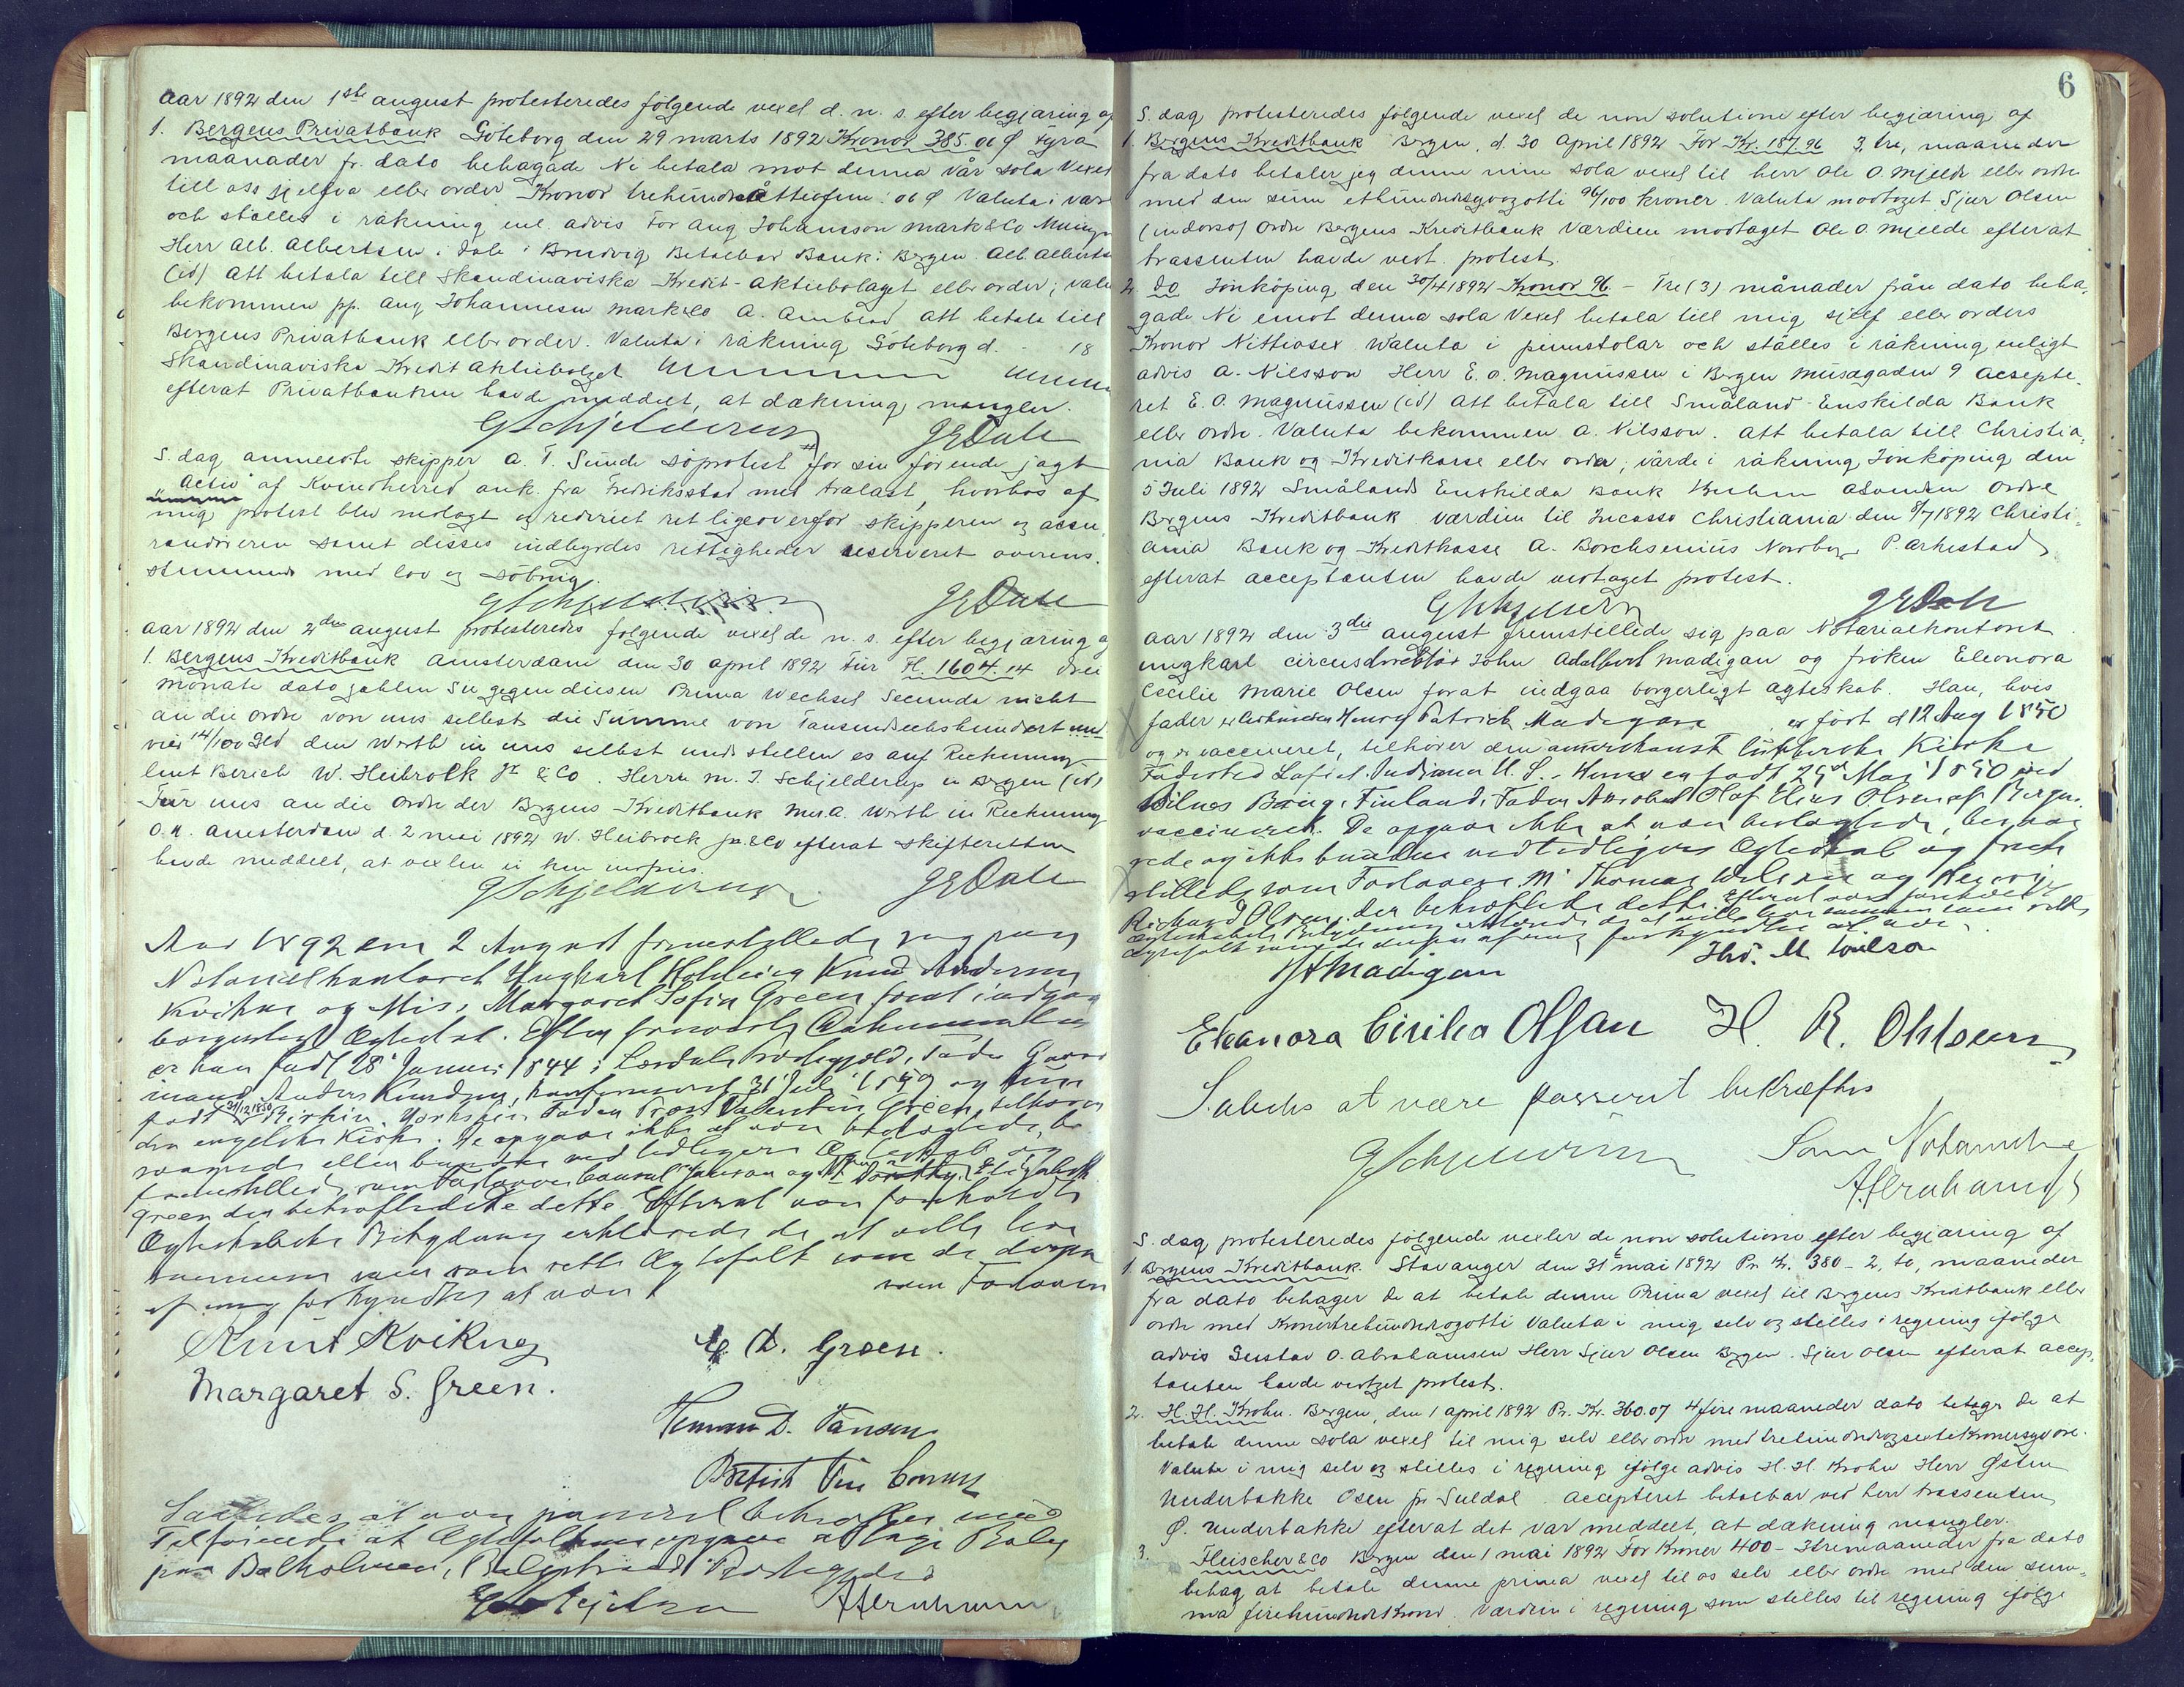 Aar 1892 den 1ste august protesteredes følgende vexel d. n. s. efter begjæring af
1. Bergens Privatbank Göteborg den 29 marts 1892 Kronor 385.06 Fyra
maanader fr. dato behagade Ni betala mot denna vår sola Vexel
till oss sjelfva eller order Kronor trehundraåttiofem 06 Valuta i var
och ställes i räkning enl. advis For Aug Johansson Mark & Co
Herr Alb. Albertsen. Dale i Bruvig Betalbar Bank: Bergen Alb. Alberts
(id) Att betala till Skandinaviska Kredit-Aktiebolaget eller order; valu
bekommen pp. Aug Johannesen Mark & Co A. att betala till
Bergens Privatbank eller order. Valuta i räkning Göteborg d. - 18
Skandinaviska Kredit Aktiebolaget
efterat Privatbanken havde meddelt, at dækning mangler.
GSchjelderup JEDale
S. dag anmeldte skipper A. T. Sunde søprotest for sin førende jagt
"Activ" af Kvindherred ank. fra Fredriksstad med tralast, hvorhos af
mig protest blev nedlagt og rederiet ret ligeoverfor skipperen og assu
randøreren samt disses indbyrdes rettigheder reserveret overens.
stemmende med lov og søbrug.
GSchjelderup JEDale
Aar 1892 den 2den august protesteredes følgende vexel de n. s. efter begjæring a
1. Bergens Kreditbank Amsterdam den 30 april 1892 Für Fl. 1604.14 Drei
Monate dato zahlen Sie gegen diesen Prima Wechsel Secunda nicht
an die Ordre von uns selbst die Summe von Tausendsechshundert und
vier 14/100 Gld den Werth in uns selbst und stellen es auf Rechnung
laut Bericht W. Heibrock Jr & Co. Herrn M. J. Schjelderup in Bergen (id)
Für uns an die Ordre der Bergens Kreditbank Werth in Rechnung
Amsterdam d. 2 mai 1892 W. Heibrock jr. & Co efterat skifteretten
havde meddelt, at vexlen ei kan indfries.
GSchjelderup JEDale
Aar 1892 den 2 August fremstillede sig paa
Notarielkontoret Ungkarl Knud Andersen
Kvikne og Miss Margaret Sofia Green forat indgaa
borgerligt Ægteskab. Efter Dokumenter
er han født 28 Januar 1844 i Lærdals Præstegjeld, Fader Gaard
mand Anders Knudsen, konfirmeret 31 Juli 1859 og hun
født 31/12 1850 Yorkshire Fader Valentin Green, tilhører
den engelske Kirke. De opgaar ikke at være beslægtede, be
svogrede eller bundne ved tidligere Ægteskab og
fremstillede som Forlovere Consul Janson og Elizabeth
Green der bekræftede dette. Efterat være foreholdt
Ægteskabets Betydning erklærede de at ville leve
sammen som rette Ægtefolk som de derpaa
af mig forkyndtes at være som Forlovere
Knut Kvikne E. D. Green.
Margaret S. Green.
Herman D. Janson
British Vice Consul
Saaledes at være passeret bekræftes med
Tilføiende at Ægtefolkene opgave at tage Bolig
paa Balholmen, Balestrand Præstegjeld
GSchjelderup
6
S. dag protesteredes følgende vexel de non solutione efter begjæring af
1. Bergens Kreditbank Bergen, d. 30 April 1892 For Kr. 187.96 3, tre, maaneder
fra dato betaler jeg denne min sola vexel til herr Ole O. Mjelde eller ordre
med den sum ethundredesyvogotti 96/100 kroner. Valuta modtaget Sjur Olsen
(indorso) Ordre Bergens Kreditbank Værdien modtaget Ole O. Mjelde efterat
trassenten havde vedt. protest.
2. Do Jönköping den 30/4 1892 Kronor 96 - Tre (3) månader från dato beha,
gade Ni emot denna sola Vexel betala till mig sjelf eller orders
Kronor Nittiosex Waluta i pinnstolar och ställes i räkning enligt
advis A. Nilsson Herr E. O. Magnussen i Bergen Musægaden 9 accepte,
ret E. O. Magnussen (id) Att betala till Småland Enskilda Bank
eller ordre. Valuta bekommen A. Nilsson. Att betala till Christia,
nia Bank og Kreditkasse eller order; värde i räkning Jönköping den
5 Juli 1892 Smålands Enskilda Bank Ordre
Bergens Kreditbank værdien til Incasso Christiania den 8/7 1892 Christi,
ania Bank og Kreditkasse A. Borchsenius
efterat acceptanten havde vedtaget protest.
GSchjelderup JEDale
Aar 1892 den 3die august fremstillede sig paa Notarialkontoret
ungkarl circusdirektør John Adalbert Madigan og frøken Eleonora
Cecilie Marie Olsen forat indgaa borgerligt ægteskab. Han, hvis
fader er Henry Patrick Madigan er født d 12 Aug 1850
og er vaccineret, tilhører den amerikansk lutherske Kirke
Fødested Lafiet. Indiana U. S. - Hun er født 29 Mai 1850 ved
Finland, Fader Olaf Elias Olsen af Bergen.
vaccineret. De opgaar ikke at være beslægtede, besvog
rede og ikke bundne ved tidligere Ægteskab og frem
stillede som Forlovere Mr Thomas Wilson og Henrik
Richard Olsen, der bekræftede dette. Efterat være foreholdt
Ægteskabets Betydning erklærede de at ville leve sammen som rette
Ægtefolk som de derpaa af mig forkyndtes at være.
JAMadigan Tho. M Wilson
Eleanora Cicilia Olsan H. R. Ohlsen
Saaledes at være passeret bekræftes
GSchjelderup Som Notarvidne
S. dag protesteredes følgende vexler de non solutione efter begjæring af
1. Bergens Kreditbank Stavanger den 31t mai 1892 Pr. Kr. 380 - 2, to, maaneder
fra dato behager De at betale denne Prima vexel til Bergens Kreditbank eller
ordre med Kroner trehundredeogotti Valuta i mig selv og stelles i regning følge
advis Gustav O. Abrahamsen Herr Sjur Olsen Bergen. Sjur Olsen efterat accep,
tanten havde vedtaget protest.
2. H. H. Krohn. Bergen, den 1 april 1892 Pr. Kr. 360.07 4 fire maaneder dato behage De at
betale denne sola vexel til mig selv eller ordre med trehundredeogsextikronersyv øre.
Valuta i mig selv og stilles i regning ifølge advis H. H. Krohn Herr Østen
Underbakke Osen pr Suldal. Accepteret betalbar ved herr trassenten
Ø. Underbakke efterat det var meddelt, at dækning mangler.
3. Fleischer & Co Bergen den 1 mai 1892 For Kroner 400 - Tremaaneder fra dato
behag at betale denne prima vexel til os selv eller ordre med den sum,
ma firehundredeKroner. Værdien i regning som stilles til regning ifølge